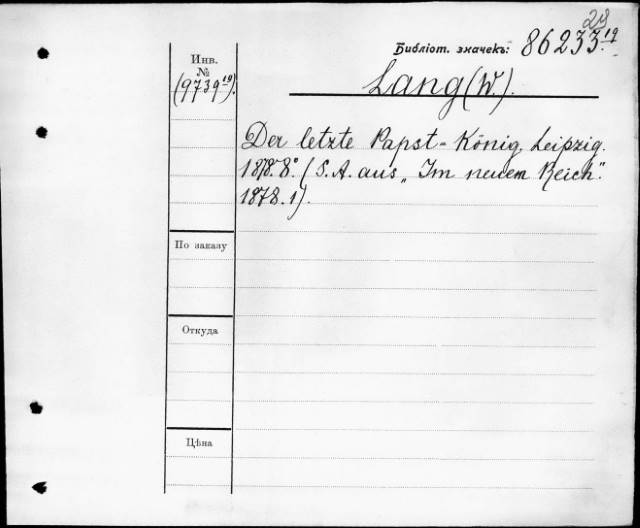 29
Библіот. значекъ: 86233.19
Инв.
№
(9739 19).
Lang (W.).
Der letzte Papst-König. Leipzig.
1878. 8°. (S. A. aus „Im neuen Reich".
1878. 1).
По заказу
Откуда
Цѣна